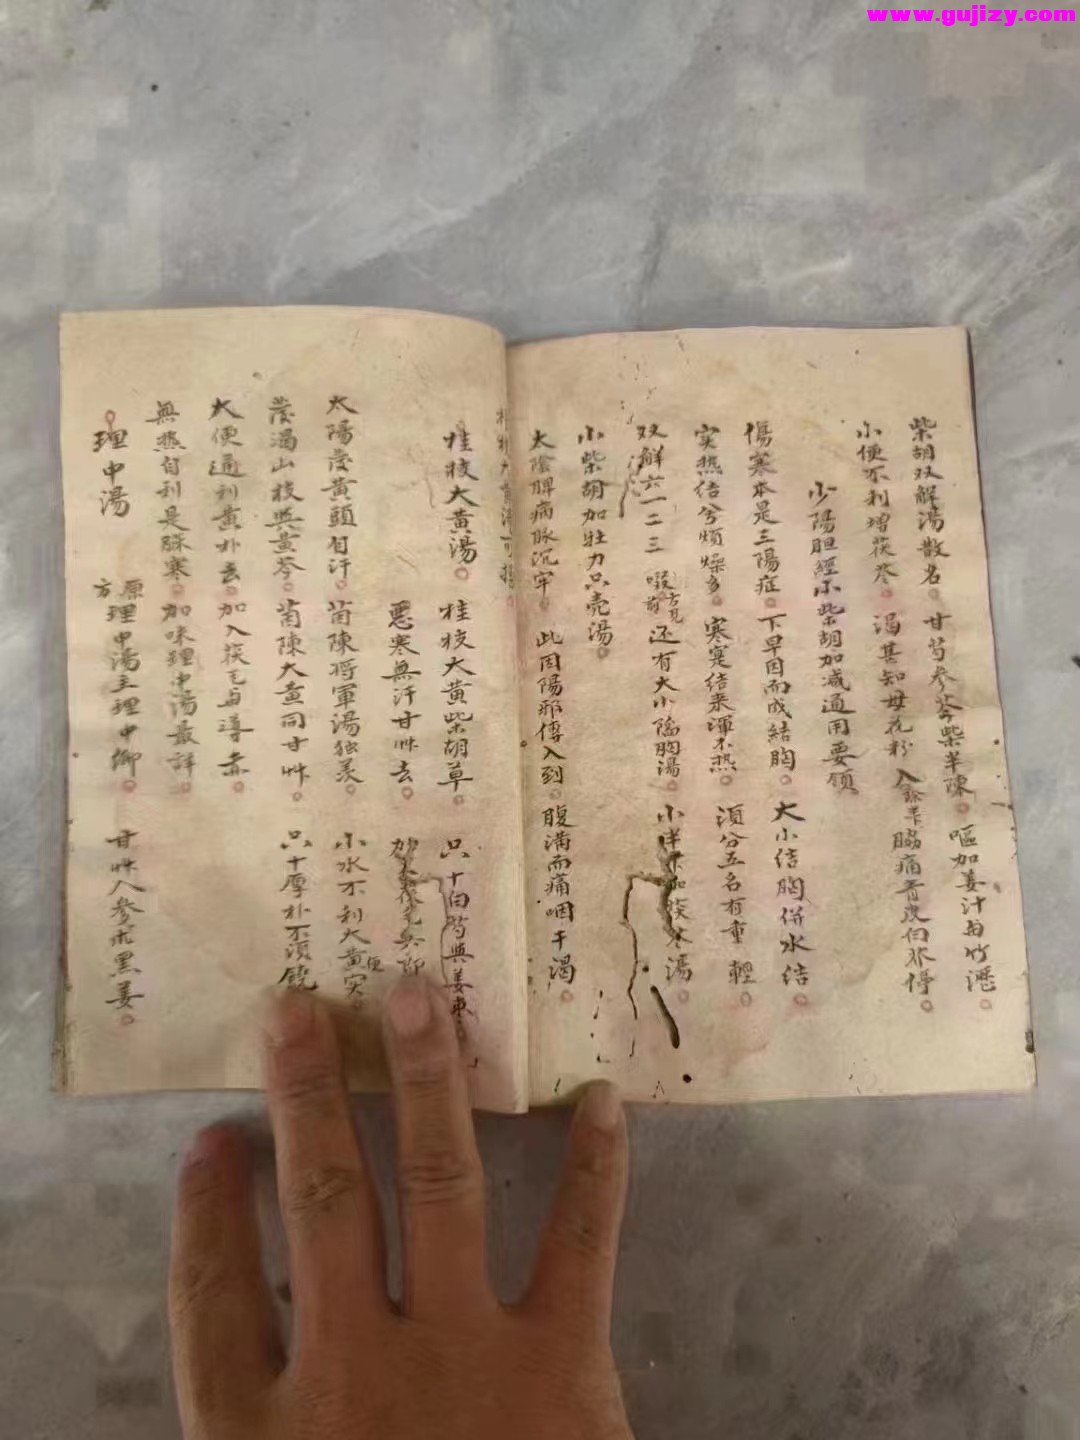 www.gujizy.com
柴胡双解湯散名 甘芍參芩柴半陳 嘔加姜汁与竹瀝
小便不利增茯苓 渴甚知母花粉入 脇痛青皮
少陽胆經小柴胡加减通用要領
傷寒本是三陽症 下早因而成結胸 大小结胸併水结
实热结兮煩燥多 寒寔结来渾不热 須分五名有重輕
双解六一二三 方見前 还有大小陷胸湯 小半下加茯苓湯
小柴胡加牡力只壳湯
太陰脾病脉沉牢 此因陽邪傳入到 腹满而痛咽干渴
桂枝大黄湯 桂枝大黄柴胡草 只十白芍與姜枣
惡寒無汗甘艸去
太陽發黄頭自汗 茵陳将軍湯独羡 小水不利大黄实 便
發渴山枝與黄芩 茵陳大黄同甘艸 只十厚朴不須饒
大便通利黄朴去 加入茯苓与導赤
無热自利是脉寒 加味理中湯最詳
理中湯 原方 理中湯主理中鄉 甘艸人參朮黑姜